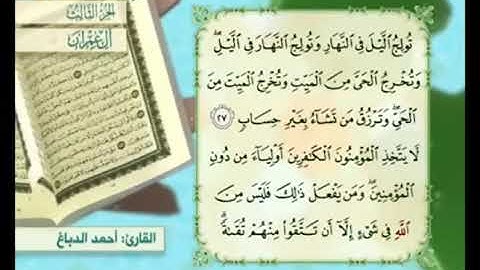 الجزء الثالث
آل عمران
تُولِجُ ٱلَّيۡلَ فِي ٱلنَّهَارِ وَتُولِجُ ٱلنَّهَارَ فِي ٱلَّيۡلِۖ
وَتُخۡرِجُ ٱلۡحَيَّ مِنَ ٱلۡمَيِّتِ وَتُخۡرِجُ ٱلۡمَيِّتَ مِنَ
ٱلۡحَيِّۖ وَتَرۡزُقُ مَن تَشَآءُ بِغَيۡرِ حِسَابٖ ٢٧
لَّا يَتَّخِذِ ٱلۡمُؤۡمِنُونَ ٱلۡكَٰفِرِينَ أَوۡلِيَآءَ مِن دُونِ
ٱلۡمُؤۡمِنِينَۖ وَمَن يَفۡعَلۡ ذَٰلِكَ فَلَيۡسَ مِنَ
ٱللَّهِ فِي شَيۡءٍ إِلَّآ أَن تَتَّقُواْ مِنۡهُمۡ تُقَىٰةٗۗ
القارئ: أحمد الدباغ